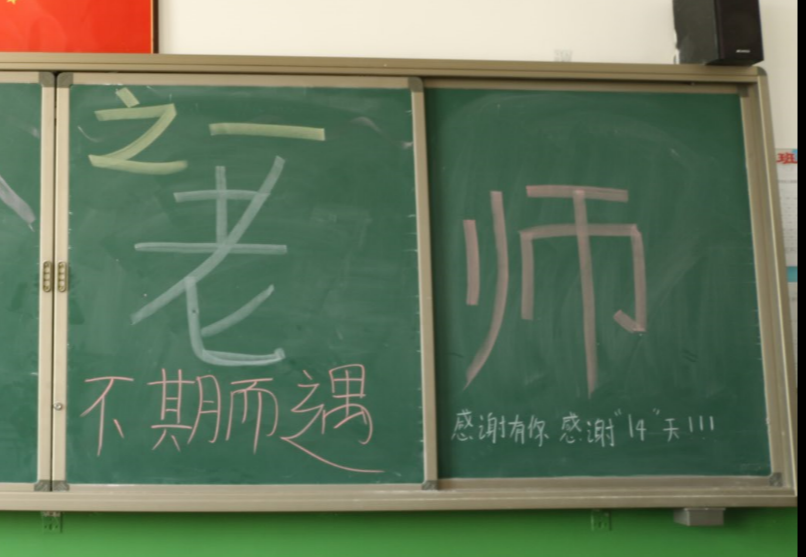 之一
老师
不期而遇
感谢有你 感谢"14"天!!!
班